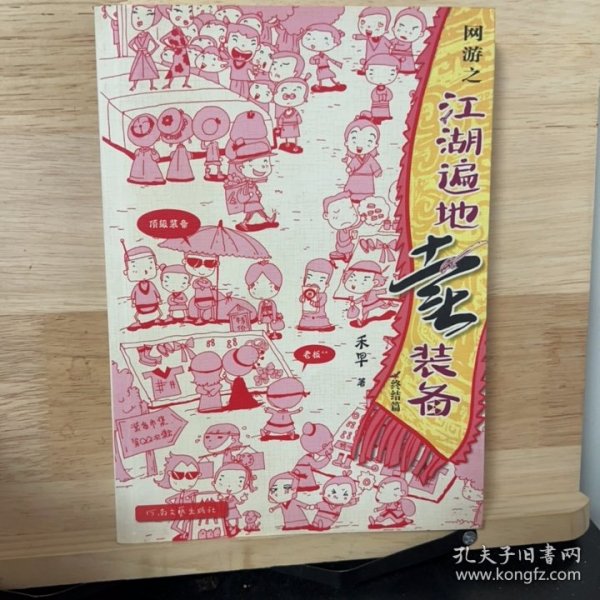 网游之
江湖遍地卖装备
终结篇
禾早 著
顶级装备
老板
装备市集
河南文艺出版社
孔夫子旧书网
www.kongfz.com